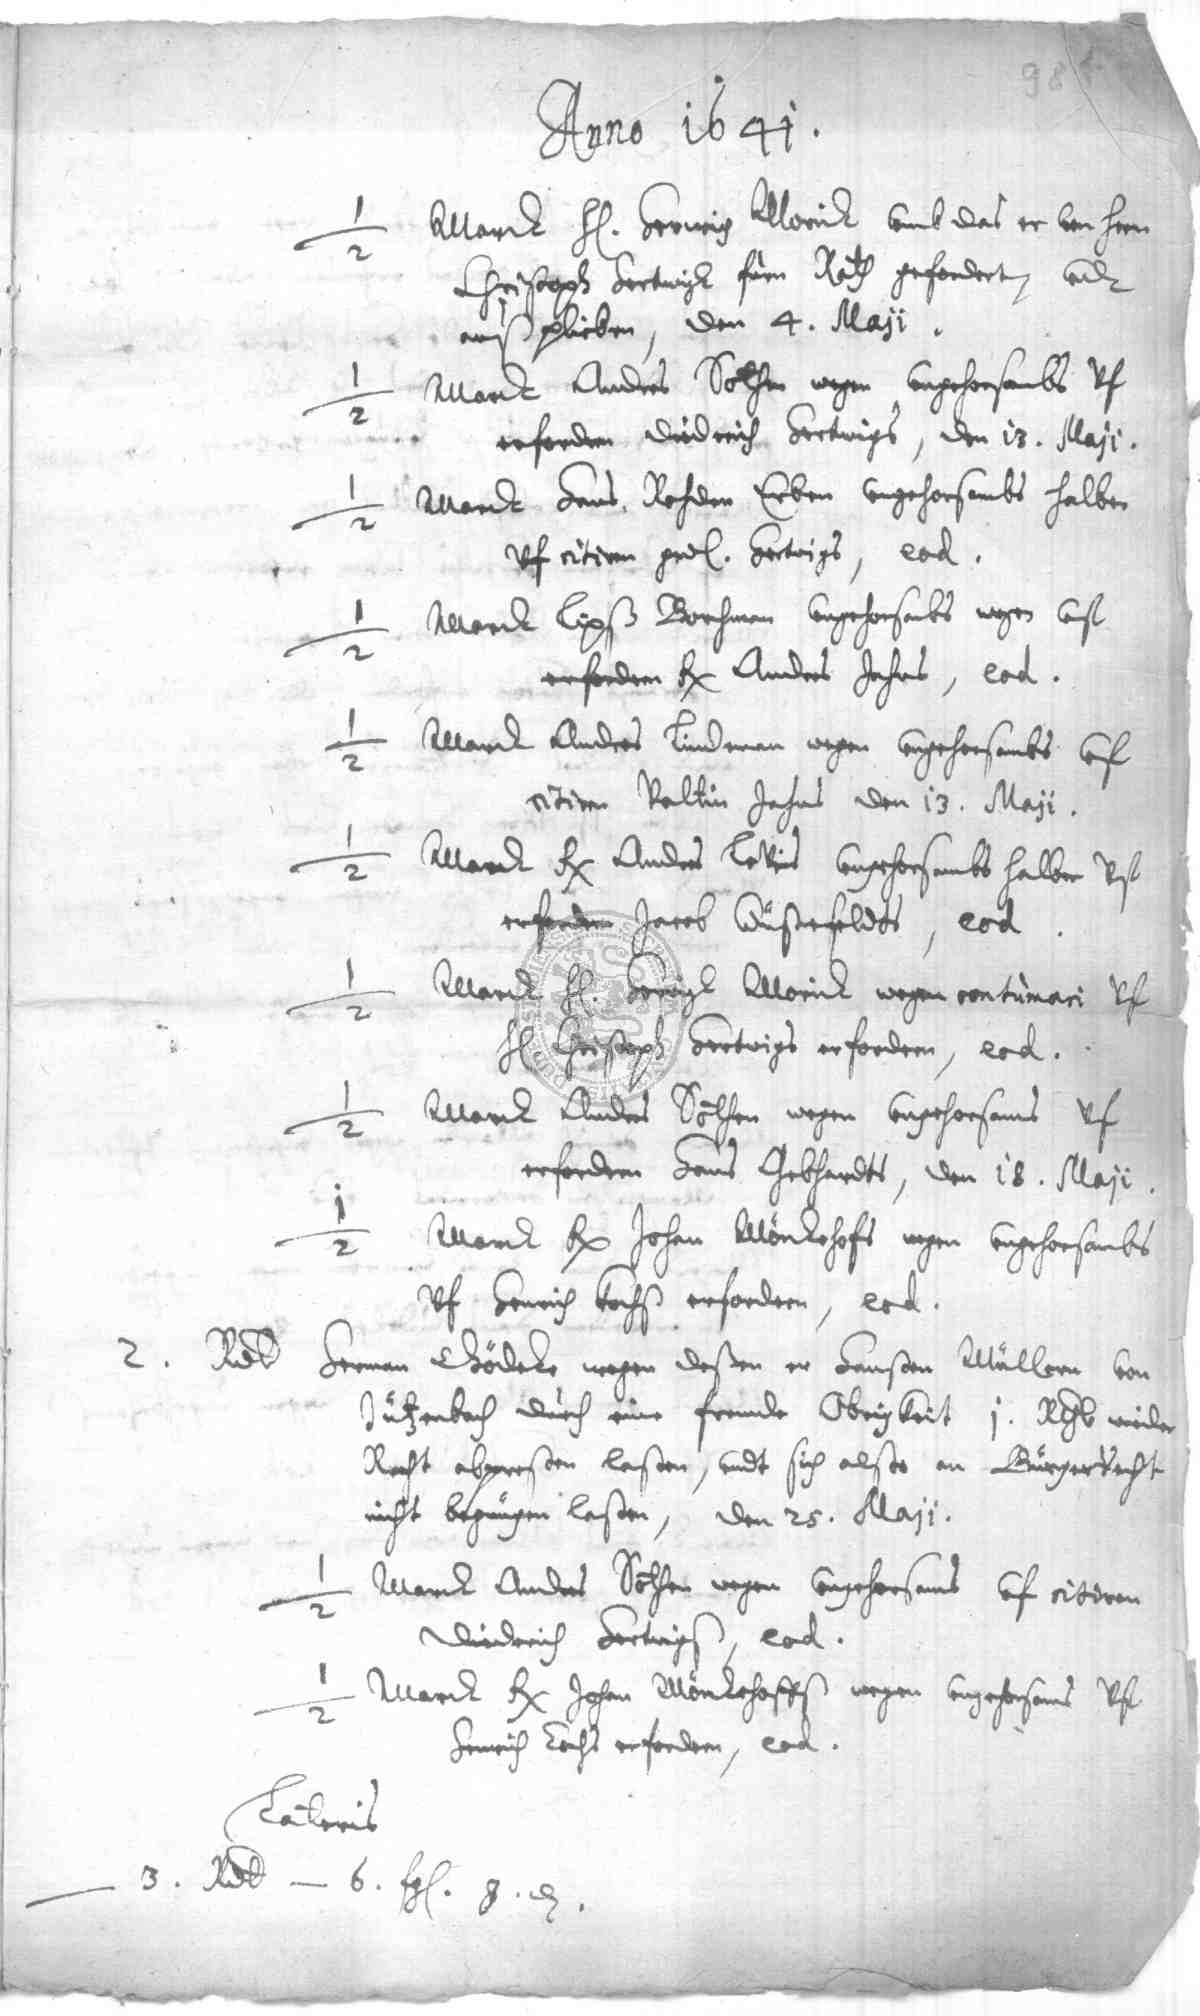 98
Anno 1641.
1/2 Marck H. Herwig Morick umb das er von Hern
Christoph Hertwigk fürn Rath gefordert, undt
außplieben, den 4. Maji.
1/2 Marck Anders Söthen wegen ungehorsambs uf
erfordern Diedreich Hertwigs, den 13. Maji.
1/2 Marck Hans Rohden Erben ungehorsambs halber
uf citiren gedl. Hertwigs, eod.
1/2 Marck Lipß Borchman ungehorsambs wegen uf
erfordern Anders Jahns, eod.
1/2 Marck Anders Lindeman wegen ungehorsambs uf
citiren Valtin Jahns den 13. Maji.
1/2 Marck Anders ungehorsambs halber uf
erfordern Jacob Wüstefeldts, eod.
1/2 Marck H. Herwigk Morick wegen contumaci uf
H. Christoph Hertwigs erfordern, eod.
1/2 Marck Anders Söthen wegen ungehorsams uf
erfordern Hans Gebhardts, den 18. Maji.
1/2 Marck Johan Mönckehofs wegen ungehorsambs
uf Henrich Kochß erfordern, eod.
2. Rdl Herman Gödeke wegen deßen er Hansen Müllern von
Jützenbach durch eine fremde Obrigkeit 1. Rthl wieder
Recht abpreßen laßen, undt sich alßo an Bürgerrecht
nicht begnügen laßen, den 25. Maji.
1/2 Marck Anders Söthen wegen ungehorsams uf citiren
Diedreich Hertwigß, eod.
1/2 Marck Johan Mönckehoffß wegen ungehorsams uf
Henrich Kochs erfordern, eod.
Lateris
3. Rdl — 6. ßgl. 8. d.